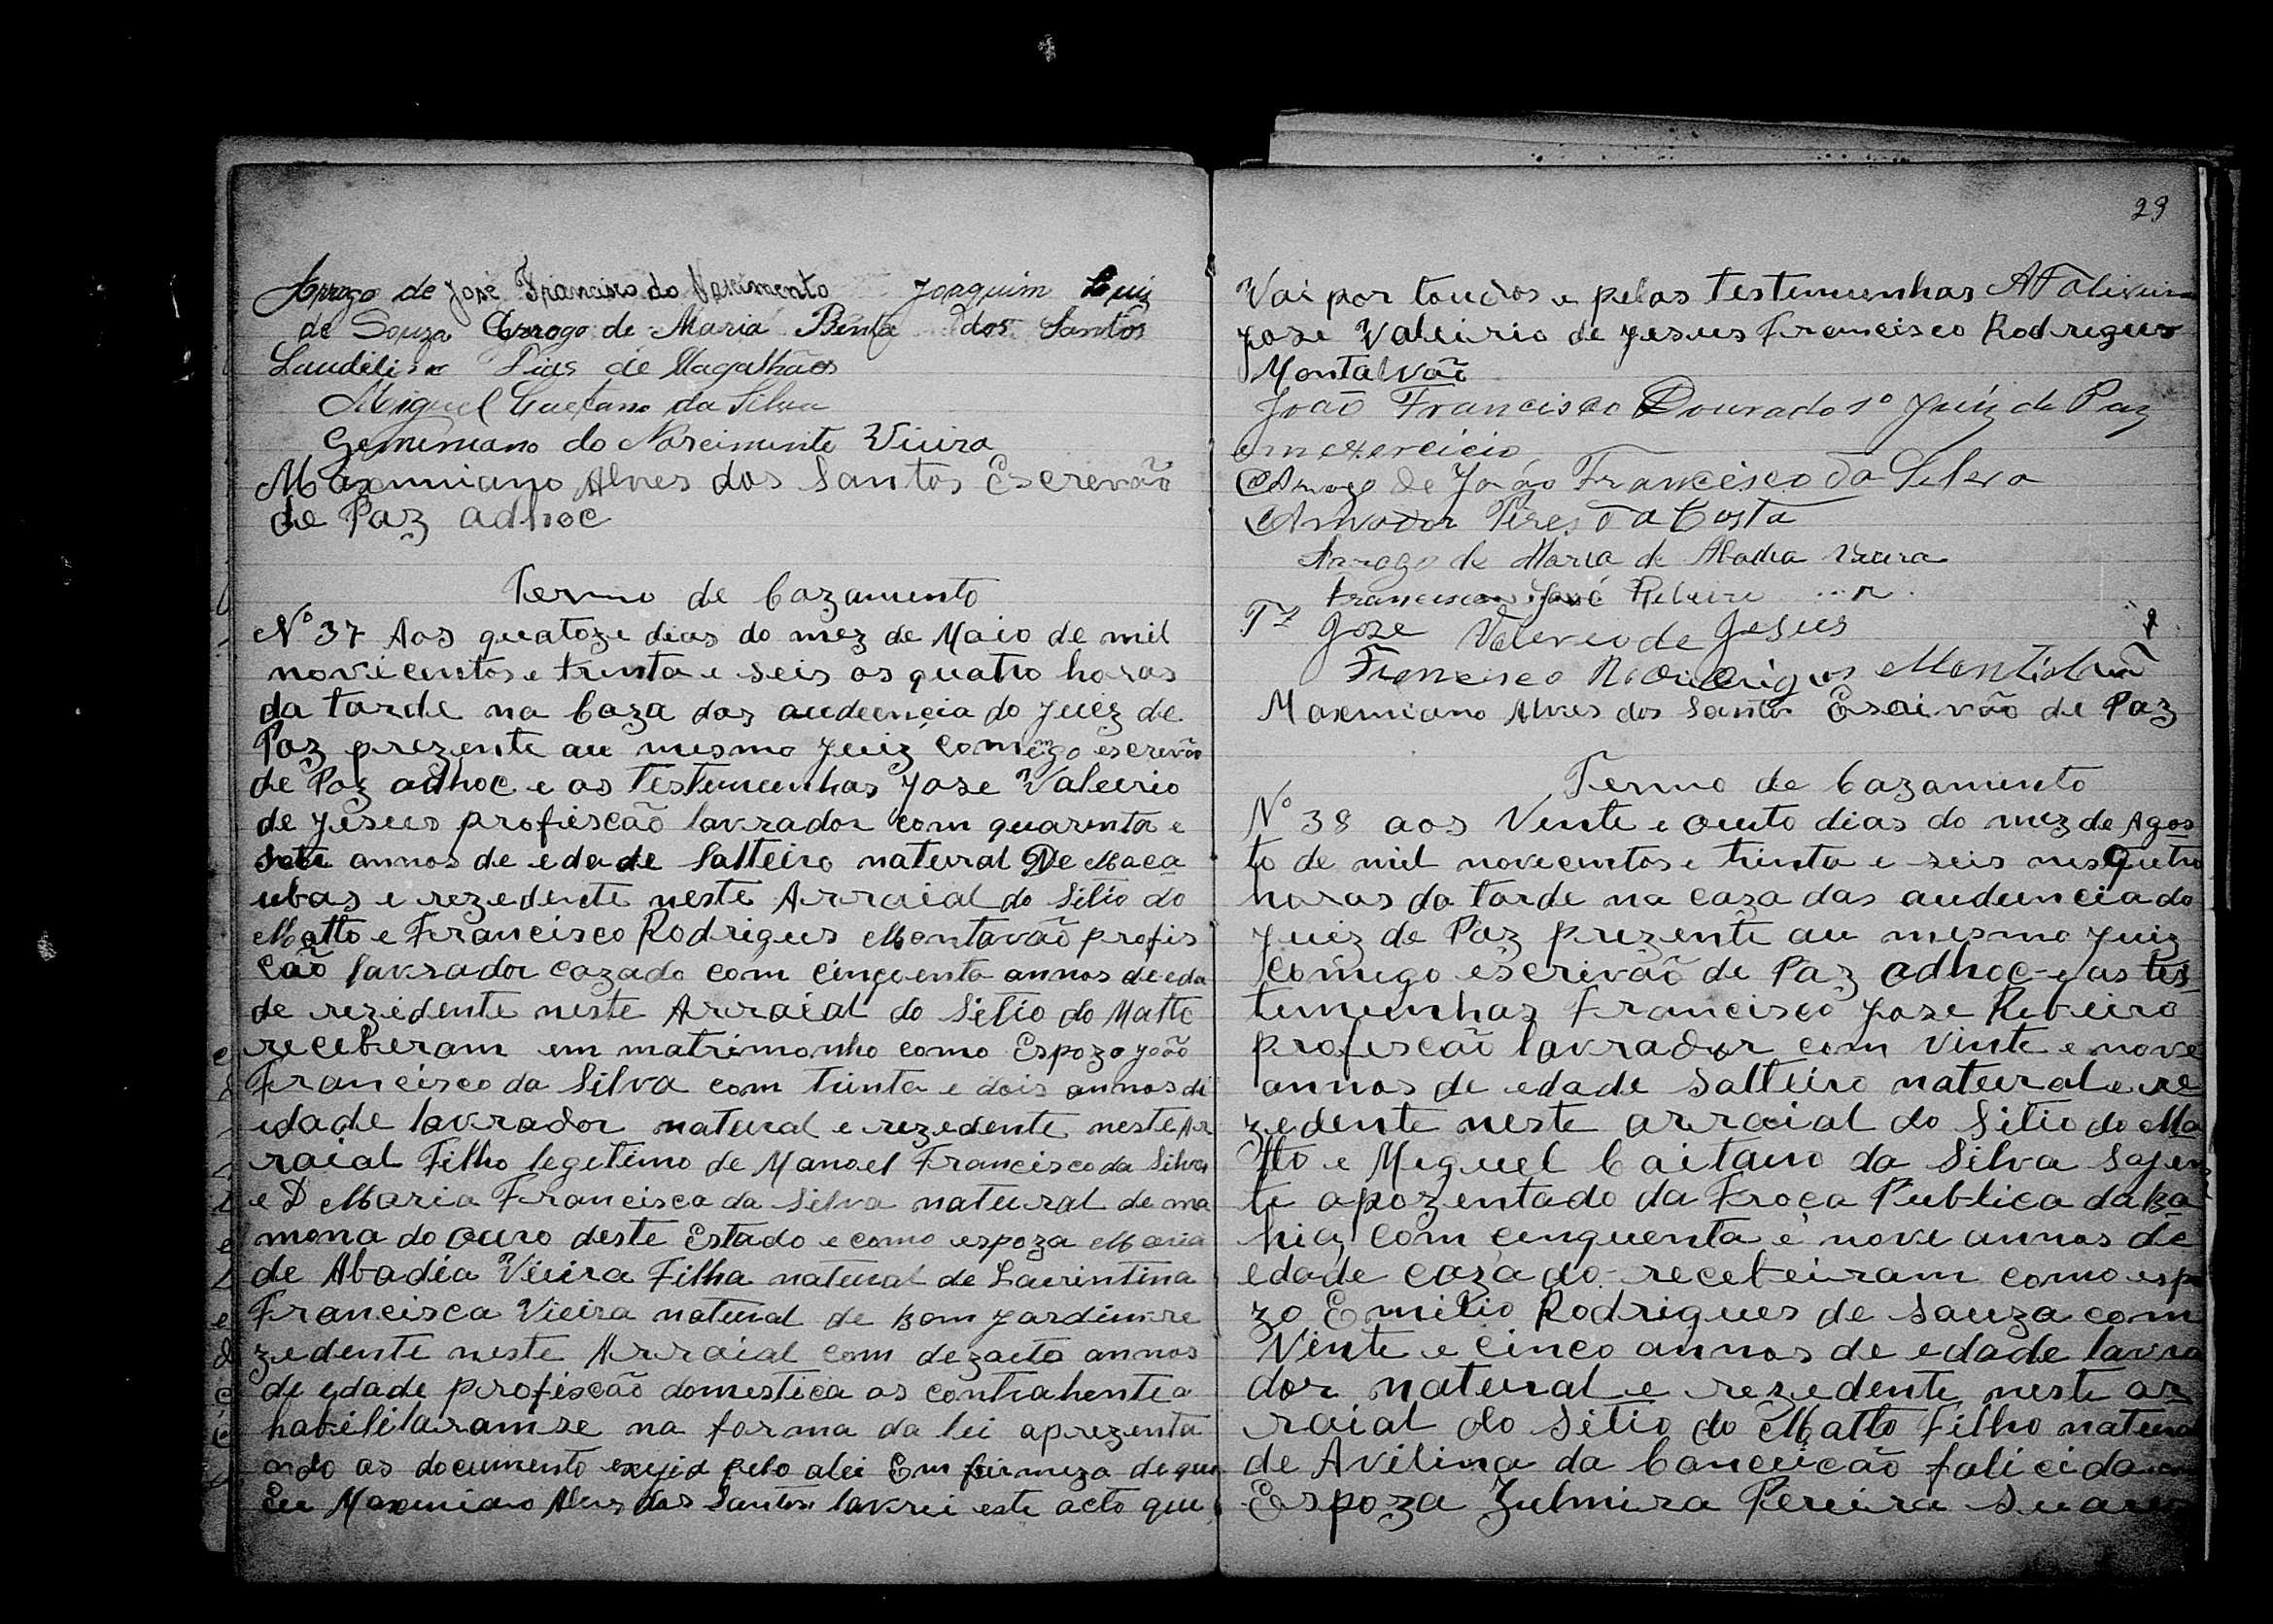 Arrogo de José Francisco do Nascimento Joaquim Luiz
de Souza Arrogo de Maria Benta dos Santos
Dias de Magalhães
Miguel Caetano da Silva
Geminiano do Nascimento Vieira
Maxmiano Alves dos Santos Escrevão
de Paz adhoc
Termo de Cazamento
Nº 37 Aos quatoze dias do mez de Maio de mil
novicentos e trinta e seis as quatro horas
da tarde na Caza das audeencia do Juiz de
Paz prezente au mesmo Juiz comigo escrevão
de Paz adhoc e as Testemunhas Jose Valeirio
de Jesus profiscão lavrador com quarinta e
sete annos de edade Salteiro natural De Maca
ubas e rezedente neste Arraial do Sitio do
Matto e Francisco Rodrigues Montavão profis
cão lavrador cazado com cinqoenta annos de eda
de rezidente neste Arraial do Sitio do Matto
receberam em matrimonho como Espozo João
Francisco da Silva com trinta e dois annos di
idade lavrador natural e rezedente neste Ar
raial Filho legetimo de Manoel Francisco da Silva
e D Maria Francisca da Silva natural de ma
mona do Ouro deste Estado e como espoza Maria
de Abadia Vieira Filha natural de Laurintina
Francisca Vieira natural de Bom Jardim re
zedente neste Arraial com dezaeto annos
de edade profiscão domestica os contrahentes
habililaramse na forma da lei aprezenta
ando as documento exijid pelo alei Em firmeza de que
Eu Maxmiano Alves dos Santos lavrei este acto que
29
Vai por toudos e pelas testemunhas
Jose Valeirio de Jesus Francisco Rodrigues
Montalvão
João Francisco Dourado 1º Juiz de Paz
em exercicio
Arrogo de João Francisco da Silva
Amador Pires da Costa
Arrogo de Maria de Abadia Vieira
Francisco José Ribeiro
Tª Joze Valerio de Jesus
Francisco Rodrigues
Maxmiano Alves dos Santos Escrivão de Paz
Termo de Cazamento
Nº 38 aos Vinte e outo dias do mez de Agos
to de mil novecentos e trinta e seis nesquetro
horas da tarde na caza das audencia do
Juiz de Paz prezente au mesmo Juiz
comigo escrivão de Paz adhoc e as tes
temunhas Francisco Jose Ribeiro
profiscão lavrador com Vinte e nove
annos de edade Salteiro natural e re
zedente neste arraial do Sitio do Ma
tto e Miguel Caitano da Silva Sajen
te apozentado da Froça Publica da Ba
hia com cenquenta e nove annos de
edade cazado receberiram como espo
zo Emilio Rodrigues de Sauza com
Vinte e cinco annos de edade lavra
dor natural e rezedente neste ar
raial do Sitio do Matto Filho natural
de Avilina da Conceicão falicida
Espoza Zulmira Pereira